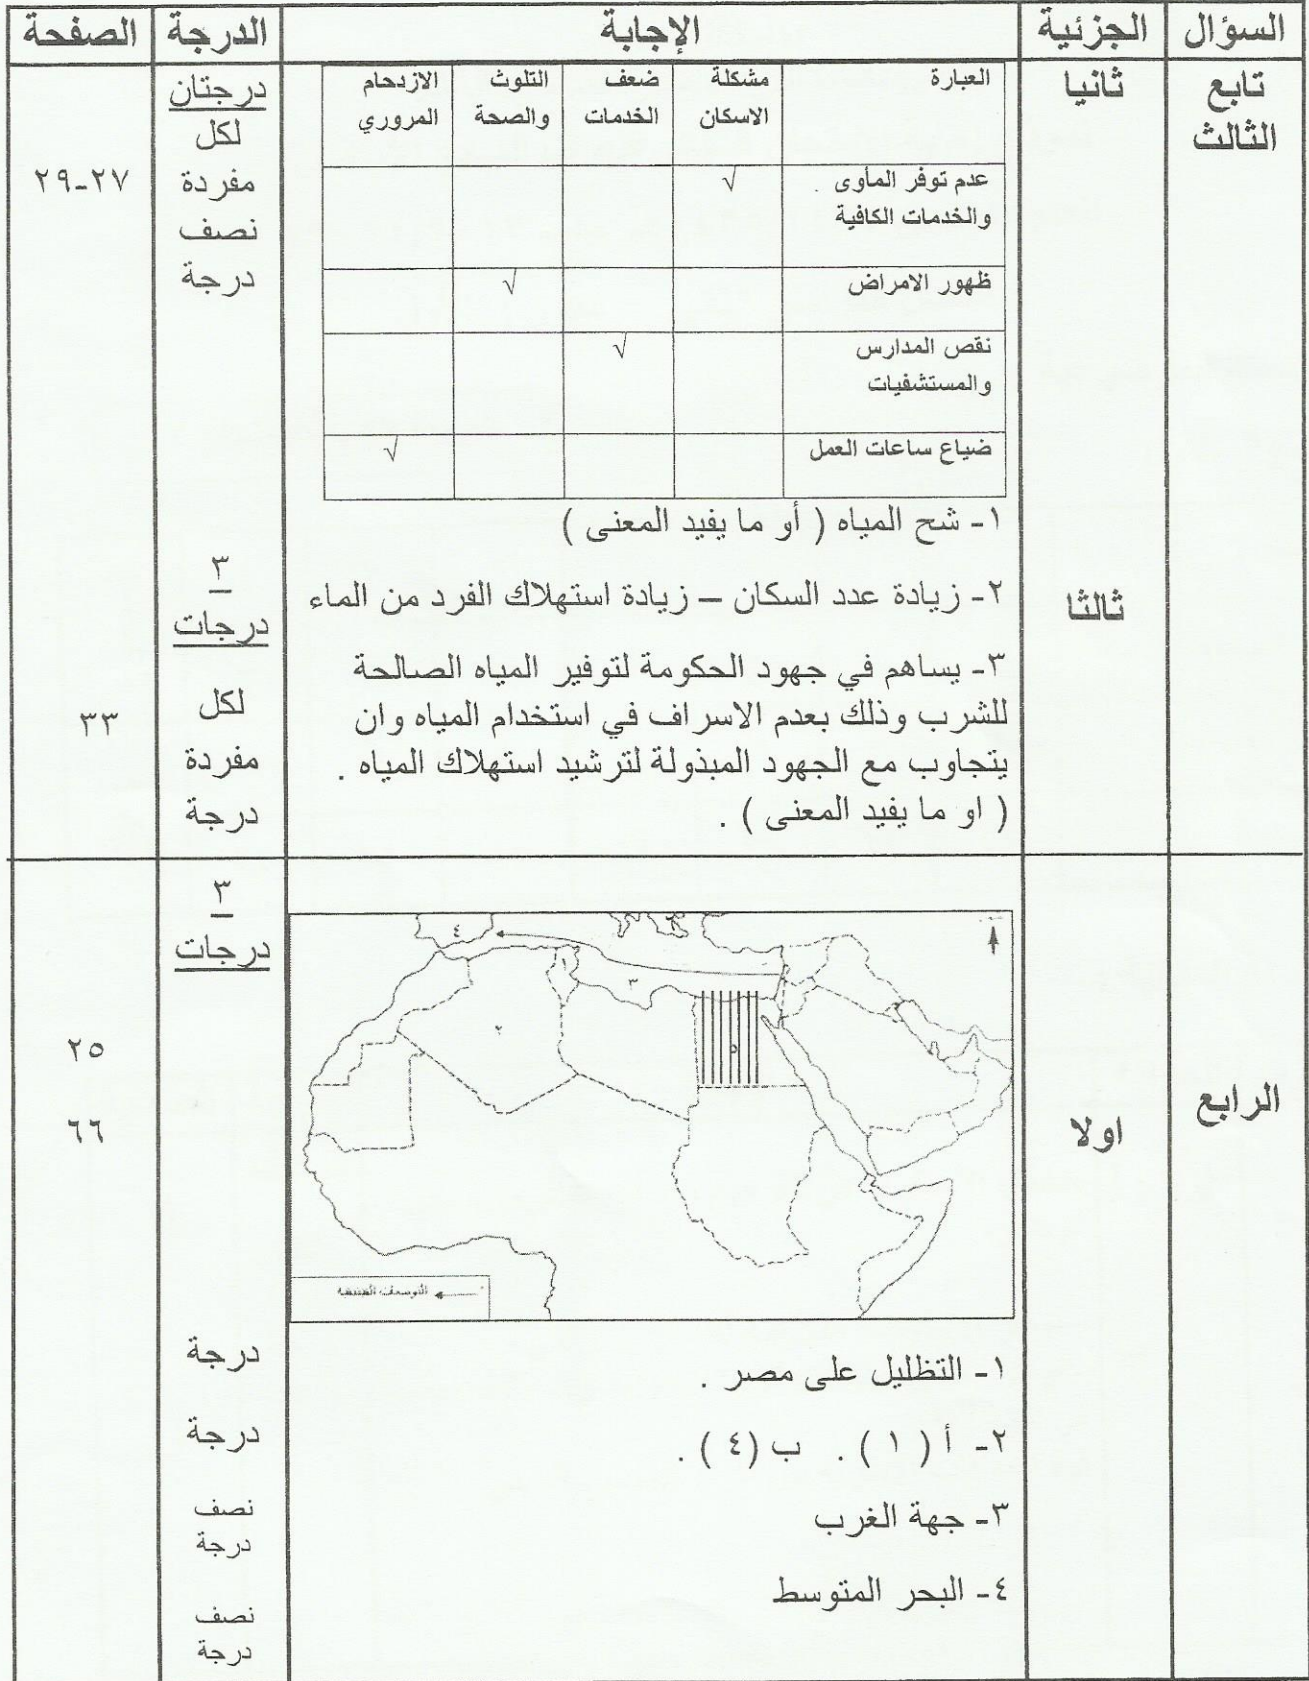 السؤال الجزئية الإجابة الدرجة الصفحة
تابع الثالث
ثانيا
العبارة مشكلة الاسكان ضعف الخدمات التلوث والصحة الازدحام المروري
عدم توفر المأوى . √
والخدمات الكافية
ظهور الامراض √
نقص المدارس √
والمستشفيات
ضياع ساعات العمل √
درجتان
لكل
مفردة
نصف
درجة
٢٧-٢٩
ثالثا
١- شح المياه ( أو ما يفيد المعنى )
٢- زيادة عدد السكان – زيادة استهلاك الفرد من الماء
٣- يساهم في جهود الحكومة لتوفير المياه الصالحة
للشرب وذلك بعدم الاسراف في استخدام المياه وان
يتجاوب مع الجهود المبذولة لترشيد استهلاك المياه .
( او ما يفيد المعنى ) .
٣
درجات
لكل
مفردة
درجة
٣٣
الرابع
اولا
٤
١
٣
٢
٥
١- التظليل على مصر .
٢- أ ( ١ ) . ب (٤ ) .
٣- جهة الغرب
٤- البحر المتوسط
٣
درجات
درجة
درجة
نصف
درجة
نصف
درجة
٢٥
٦٦